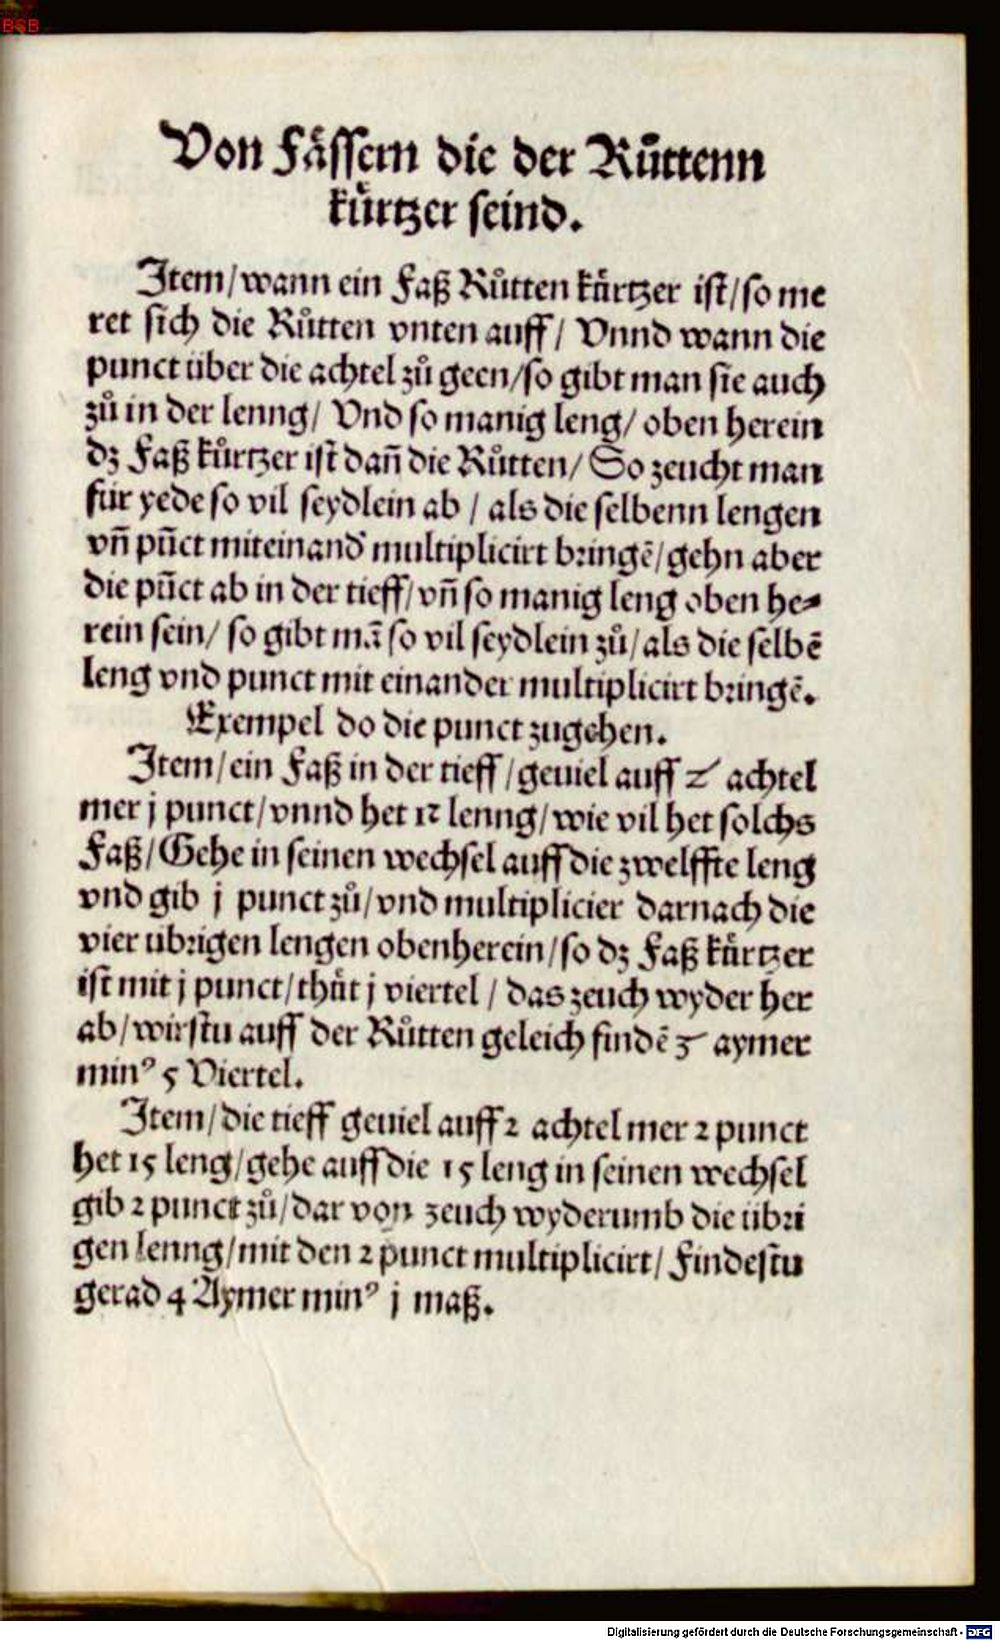 BSB
Von Fässern die der Růttenn
kürtzer seind.
Item/wann ein Faß Růtten kürtzer ist/so me
ret sich die Růtten vnten auff/ Vnnd wann die
punct über die achtel zů geen/so gibt man sie auch
zů in der lenng/ Vnd so manig leng/ oben herein
dz Faß kürtzer ist dañ die Růtten/ So zeucht man
für yede so vil seydlein ab / als die selbenn lengen
vñ pūct miteinand' multiplicirt bringē/gehn aber
die pūct ab in der tieff/vñ so manig leng oben he⸗
rein sein/ so gibt mā so vil seydlein zů/als die selbē
leng vnd punct mit einander multiplicirt bringē.
Exempel do die punct zugehen.
Item/ein Faß in der tieff/geuiel auff 2 achtel
mer j punct/vnnd het 12 lenng/wie vil het solchs
Faß/Gehe in seinen wechsel auff die zwelffte leng
vnd gib j punct zů/vnd multiplicier darnach die
vier übrigen lengen obenherein/so dz Faß kürtzer
ist mit j punct/thůt j viertel / das zeuch wyder her
ab/wirstu auff der Růtten geleich findē 3 aymer
minꝰ 5 Viertel.
Item/die tieff geuiel auff 2 achtel mer 2 punct
het 15 leng/gehe auff die 15 leng in seinen wechsel
gib 2 punct zů/dar von zeuch wyderumb die übri
gen lenng/mit den 2 punct multiplicirt/ Findestu
gerad 4 Aymer minꝰ j maß.
Digitalisierung gefördert durch die Deutsche Forschungsgemeinschaft - DFG